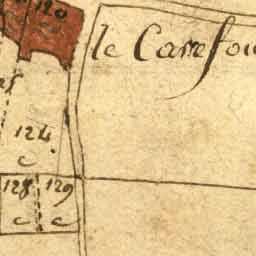 120
le Carefou
124
c
128 129
c c